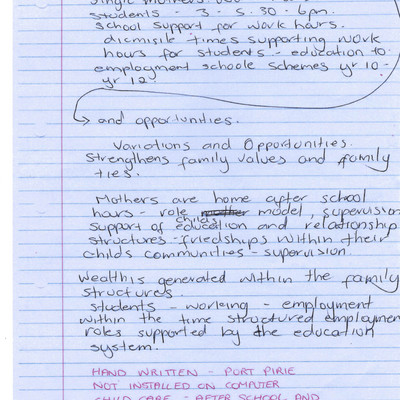 single mothers
students - 3. - 5.30 - 6pm.
school support for work hours.
dicmisile times supporting work
hours for students - education to
employment schoole schemes yr 10 -
yr 12
and opportunities.
Variations and Opportunities.
strengthens family values and family
ties.
Mothers are home after school
hours - role model, supervision
support of childs education and relationship
structures - friedships within their
childs communities - supervision.
Wealth is generated within the family
structures.
students - working - employment
within the time structured employment
roles supported by the education
system.
HAND WRITTEN - PORT PIRIE
NOT INSTALLED ON COMPUTER
CHILD CARE - AFTER SCHOOL AND